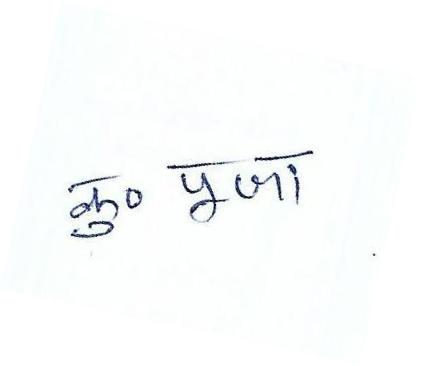 कु० पुजा